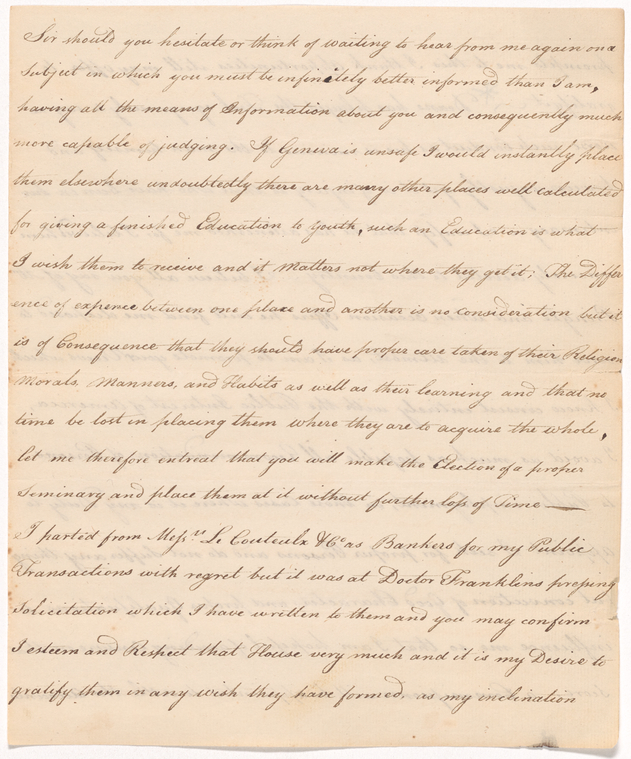 Sir should you hesitate or think of waiting to hear from me again on a
Subject in which you must be infinitely better informed than I am,
having all the means of Information about you and consequently much
more capable of judging. If Geneva is unsafe I would instantly place
them elsewhere undoubtedly there are many other places well calculated
for giving a finished Education to Youth, such an Education is what
I wish them to receive and it Matters not where they get it; The Differ
ence of expence between one place and another is no consideration but it
is of Consequence that they should have proper care taken of their Religion
Morals, Manners, and Habits as well as their learning and that no
time be lost in placing them where they are to acquire the whole,
let me therefore entreat that you will make the Election of a proper
Seminary and place them at it without further loss of Time —
I parted from Messrs. Le Couteulx & Co as Bankers for my Public
Transactions with regret but it was at Doctor Franklins pressing
Solicitation which I have written to them and you may confirm
I esteem and Respect that House very much and it is my Desire to
gratify them in any wish they have formed, as my inclination